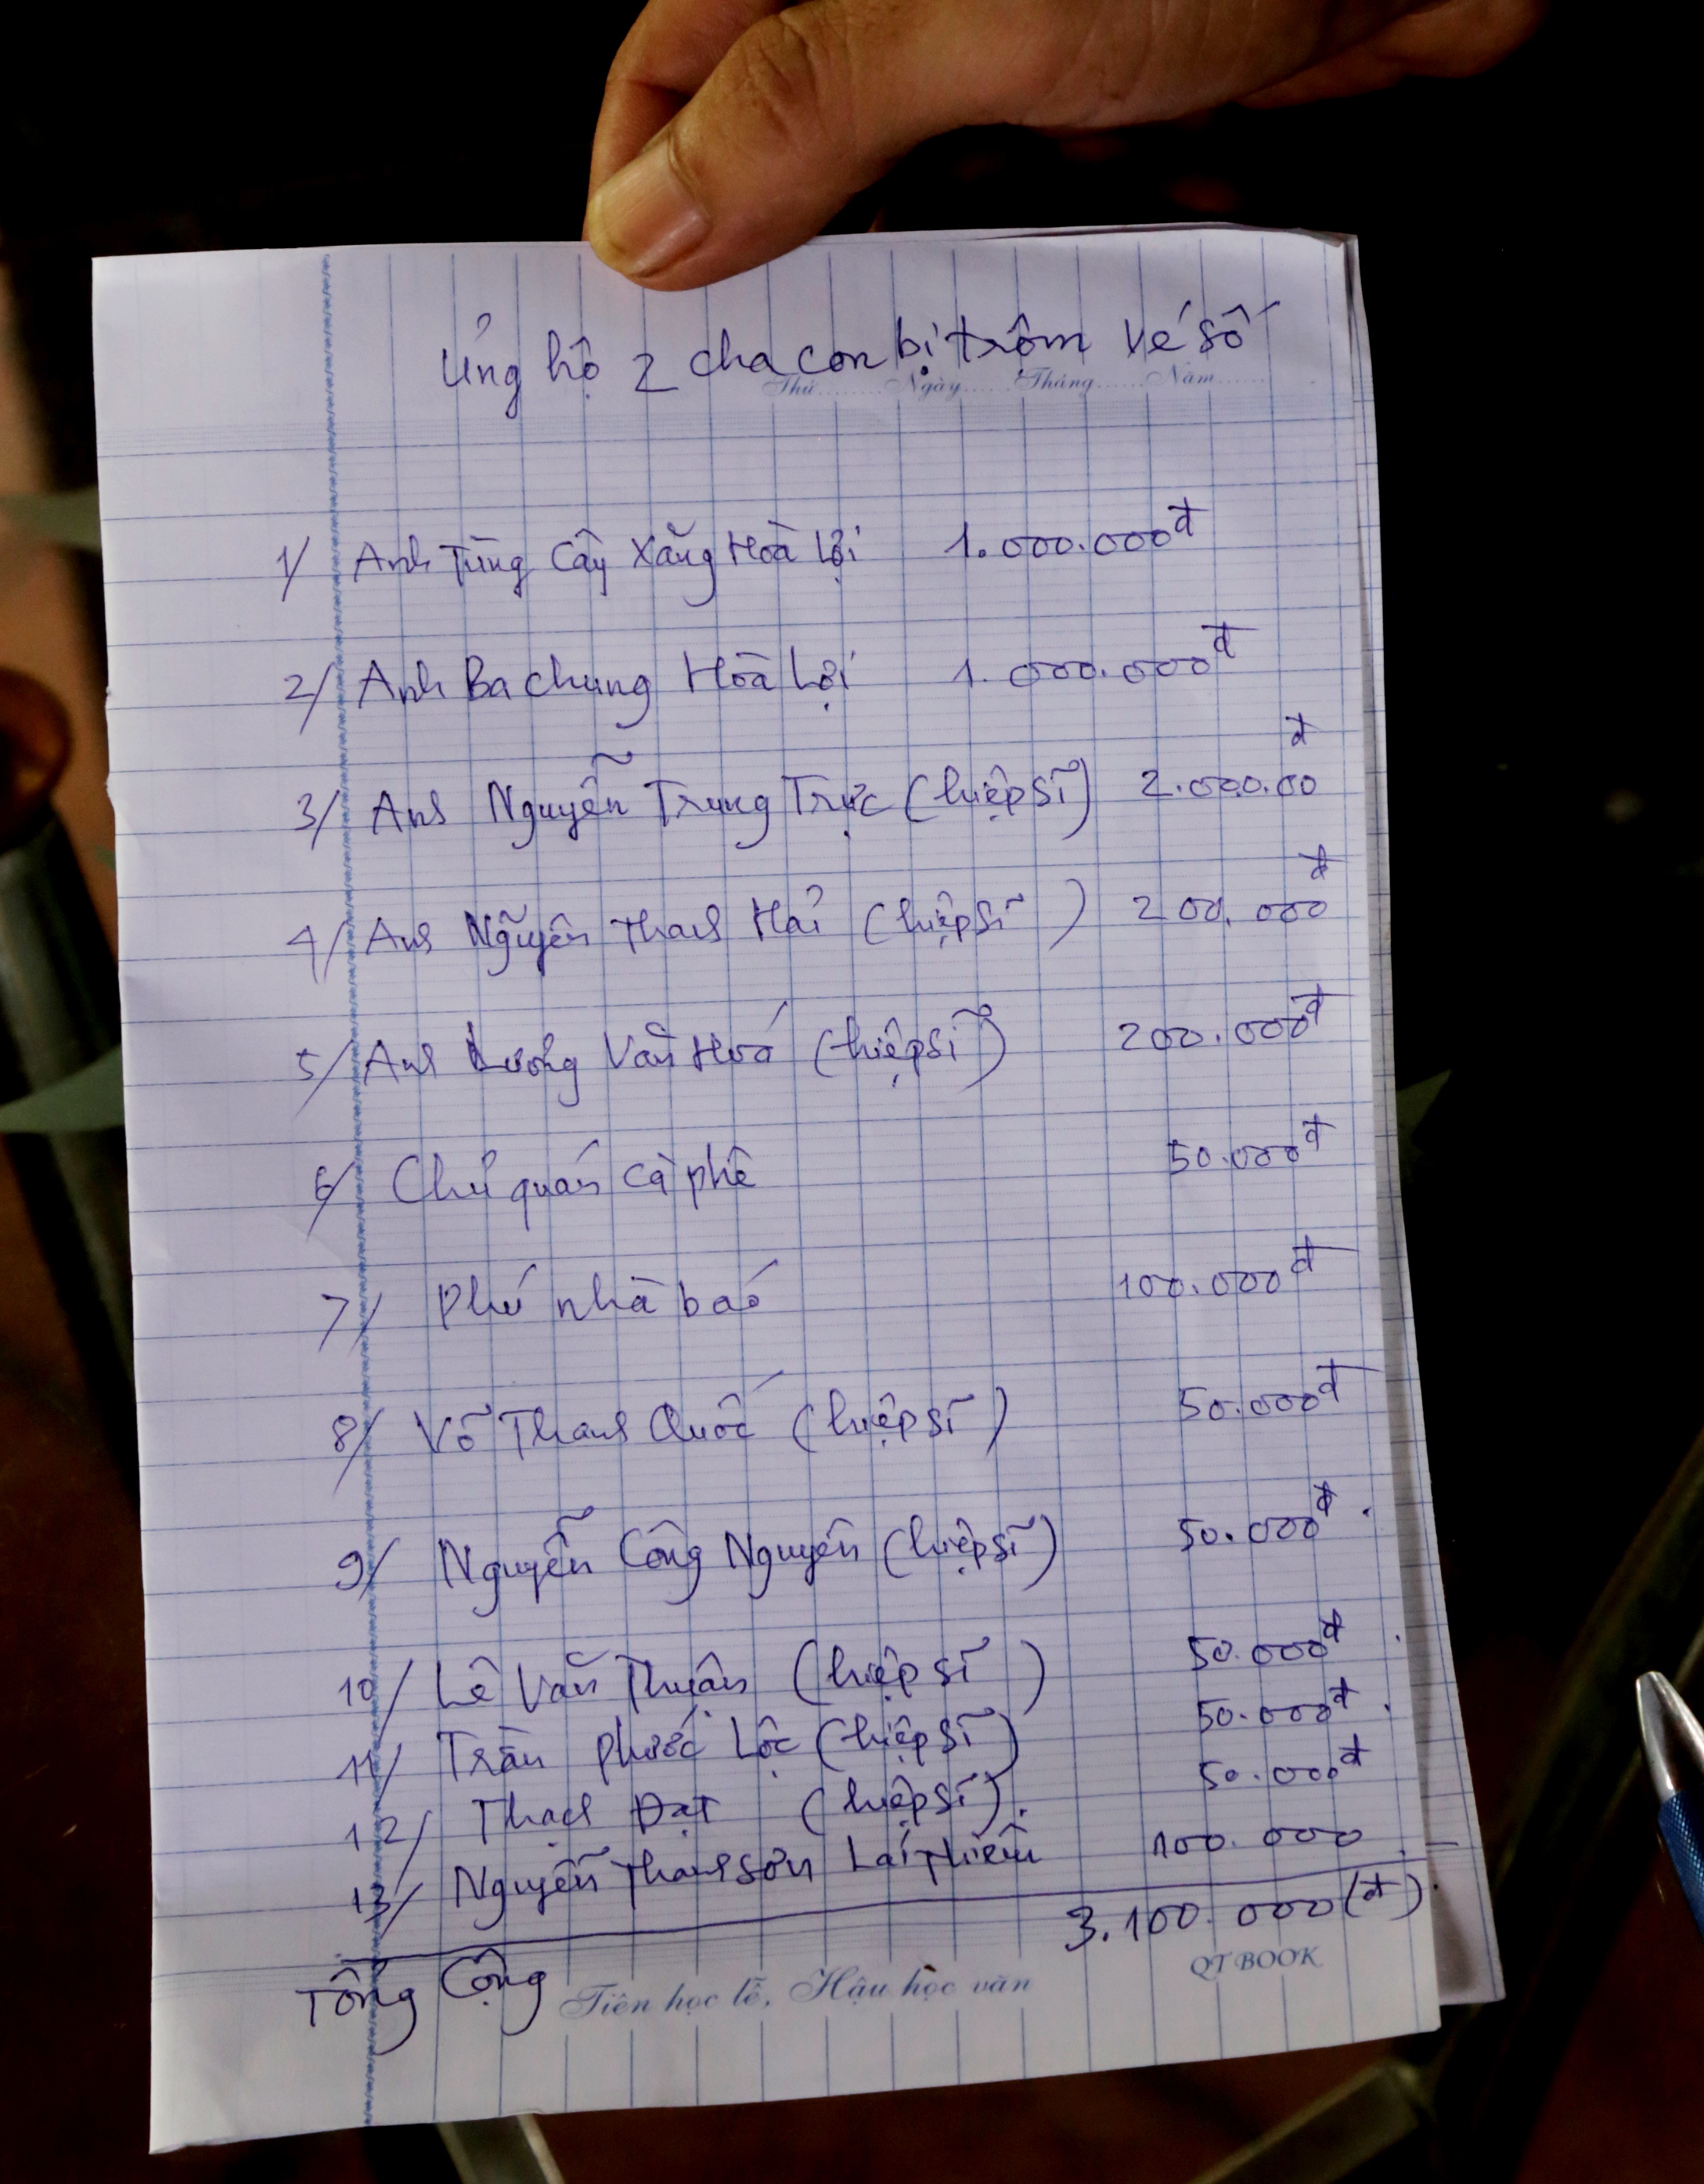 Ủng hộ 2 cha con bị trộm vé số
Thứ........Ngày......Tháng......Năm......
1/ Anh Tùng Cây Xăng Hoà Lợi 1.000.000đ
2/ Anh Ba chung Hoà Lợi 1.000.000đ
3/ Anh Nguyễn Trung Trực (hiệp sĩ) 2.000.00đ
4/ Anh Nguyễn Thanh Hải (hiệp sĩ) 200.000đ
5/ Anh Lương Văn Hoá (hiệp sĩ) 200.000đ
6/ Chủ quán cà phê 50.000đ
7/ Phú nhà báo 100.000đ
8/ Võ Thanh Quốc (hiệp sĩ) 50.000đ
9/ Nguyễn Công Nguyên (hiệp sĩ) 50.000đ
10/ Lê Văn Thuận (hiệp sĩ) 50.000đ
11/ Trần Phước Lộc (hiệp sĩ) 50.000đ
12/ Thạch Đạt (hiệp sĩ). 50.000đ
13/ Nguyễn Thanh Sơn Lái Thiêu 100.000
Tổng Cộng 3.100.000(đ)
Tiên học lễ, Hậu học văn QT BOOK